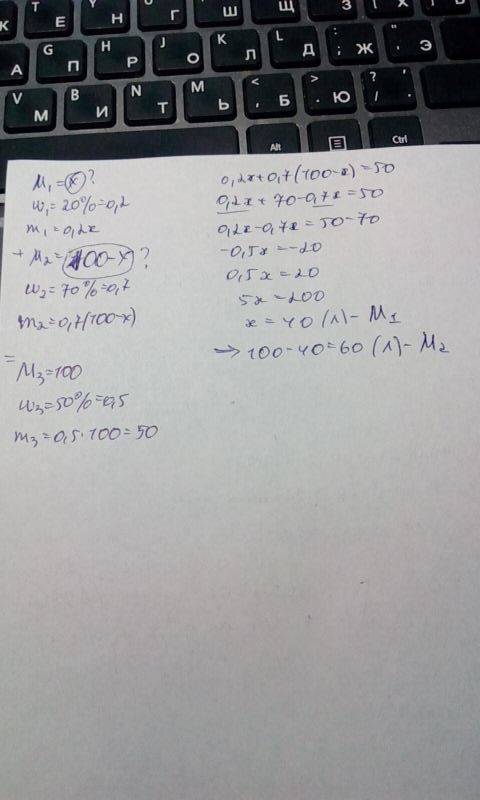 T Е Y Н U Г I Ш O Щ P З { Х } Ъ
А G П H Р J О K Л L Д : ; Ж " ' Э
V М B И N Т M Ь < , Б > . Ю ? / .
Alt Ctrl
M₁ = x ?
w₁ = 20% = 0,2
m₁ = 0,2x
+ M₂ = 100-x ?
w₂ = 70% = 0,7
m₂ = 0,7(100-x)
=
M₃ = 100
w₃ = 50% = 0,5
m₃ = 0,5·100 = 50
0,2x + 0,7(100-x) = 50
0,2x + 70 - 0,7x = 50
0,2x - 0,7x = 50 - 70
-0,5x = -20
0,5x = 20
5x = 200
x = 40 (л) - M₁
→ 100 - 40 = 60 (л) - M₂